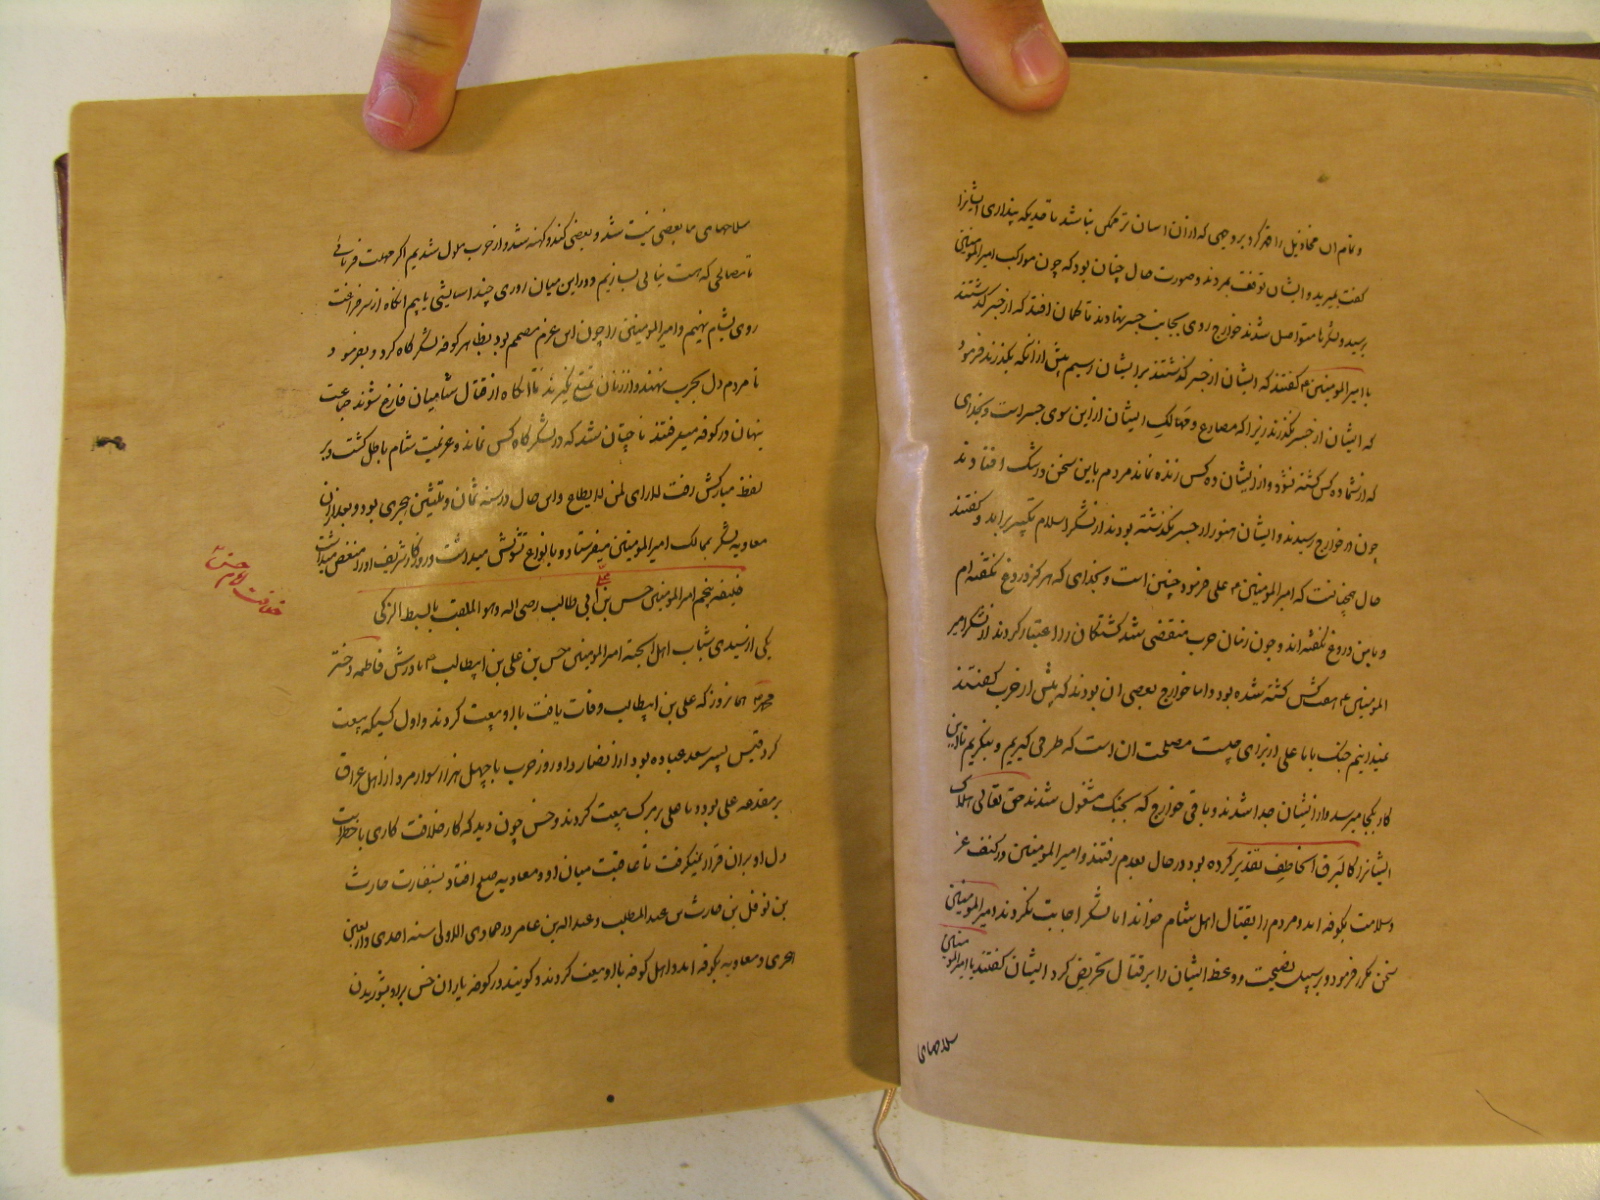 و تمام آن مخاذیل را قهر کرد بر وجهی که از آن آسان تر ممکن نباشد تا حدیکه پنداری ایشانرا
گفت بمیرید و ایشان توقف نمردند و صورت حال چنان بود که چون مواکب امیرالمومنین
برسید و لشکرها متواصل شدند خوارج روی بجانب جسر نهادند تا گمان افتد که از جسر گذشتند
با امیرالمومنین گفتند که ایشان از جسر گذشتند بر ایشان رسیم پیش از آنکه بگذرند فرمود
که ایشان از جسر نگذرند زیرا که مصارع و مهالک ایشان ازین سوی جسر است و بخدای
که از شما ده کس کشته نشود و از ایشان ده کس زنده نماند مردم باین سخن در شک افتادند
چون در خوارج رسیدند و ایشان هنوز از جسر نگذشته بودند از لشکر اسلام تکبیر برآمد و گفتند
حال همچنانست که امیرالمومنین علی فرمود چنین است و بخدای که هرگز دروغ نگفته ام
و با من دروغ نگفته اند و چون زمان حرب منقضی شد کشتگان را اعتبار کردند از لشکر امیر
المومنین هفت کس کشته شده بود و اما خوارج بعضی آن بودند که پیش از حرب گفتند
نمیدانیم جنگ با علی از برای چیست مصلحت آن است که طرفی گیریم و بنگریم تا این
کار بکجا میرسد و از ایشان جدا شدند و باقی خوارج که بجنگ مشغول شدند حق تعالی هلاک
ایشانرا کالبرق الخاطف تقدیر کرده بود در حال بعدم رفتند و امیرالمومنین در کنف عز
و سلامت بکوفه آمد و مردم را بقتال اهل شام خواند اما لشکر اجابت نکردند امیرالمومنین
سخن مکرر فرمود و بر سبیل نصیحت و وعظ ایشان را بر قتال تحریض کرد ایشان گفتند یا امیرالمومنین
سلاحهای
سلاحهای ما بعضی نیست شد و بعضی کند و کهنه شد و از حرب ملول شدیم اگر مهلت فرمائی
تا مصالحی که هست بسازیم و در این میان روزی چند آسایشی یابیم آنگاه از سر فراغت
روی بشام نهیم و امیرالمومنین را چون این عزم مصمم بود بظاهر کوفه لشکرگاه کرد و بفرمود
تا مردم دل بحرب نهند و از زنان تمتع نگیرند تا آنگاه از قتال شامیان فارغ شوند جماعت
پنهان در کوفه میرفتند تا چنان شد که در لشکرگاه کس نماند و عزیمت شام باطل گشت و بر
لفظ مبارکش رفت لا رای لمن لا یطاع و این حال در سنه ثمان و ثلثین هجری بود و بعد از آن
معاویه لشکر بممالک امیرالمومنین میفرستاد و بانواع مشوش میداشت و روزگار شریف او را منغص میداشت
خلیفه پنجم امیرالمومنین حسن بن علی ابی طالب رضی الله و هو الملقب بالسبط الزکی
یکی از سیدی شباب اهل الجنة امیرالمومنین حسن بن علی بن ابیطالب مادرش فاطمه دختر
محمد همان روز که علی بن ابیطالب وفات یافت با او بیعت کردند و اول کسیکه بیعت
کرد قیس پسر سعد عباده بود از انصار و او روز حرب با چهل هزار سوار مرد از اهل عراق
بر مقدمه علی بود و با علی بر مرگ بیعت کردند و حسن چون دید که کار خلافت کاری با خطر است
دل او بر آن قرار نمیگرفت تا عاقبت میان او و معاویه صلح افتاد بسفارت حارث
بن نوفل بن حارث بن عبدالمطلب و عبدالله بن عامر در جمادی الاولی سنه احدی و اربعین
هجری و معاویه بکوفه آمد و اهل کوفه با او بیعت کردند و گویند در کوفه یاران حسن برو بشوریدن
خلافت امام حسن